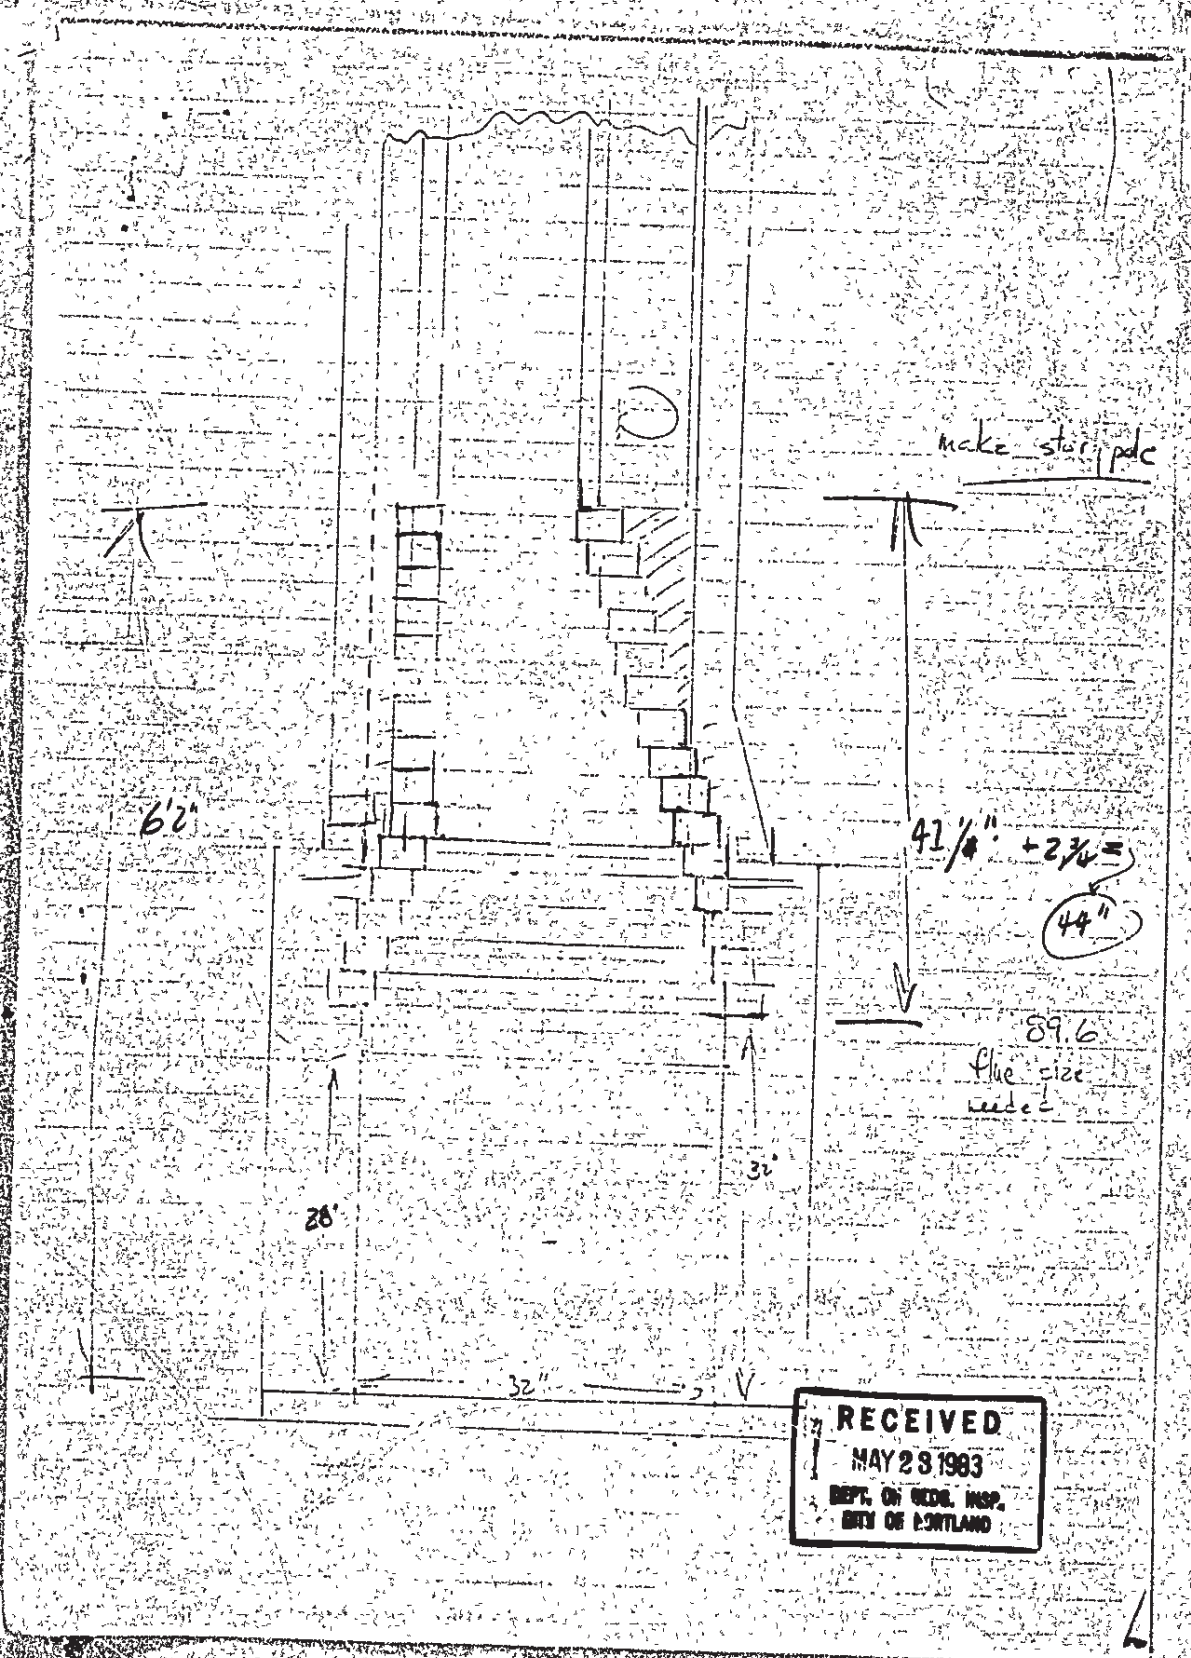 make story pole
6'2"
41 1/4" + 2 3/4 =
44"
89.6
flue size
needed
32"
28"
32"
RECEIVED
MAY 23 1983
DEPT. OF BLDG. INSP.
CITY OF PORTLAND